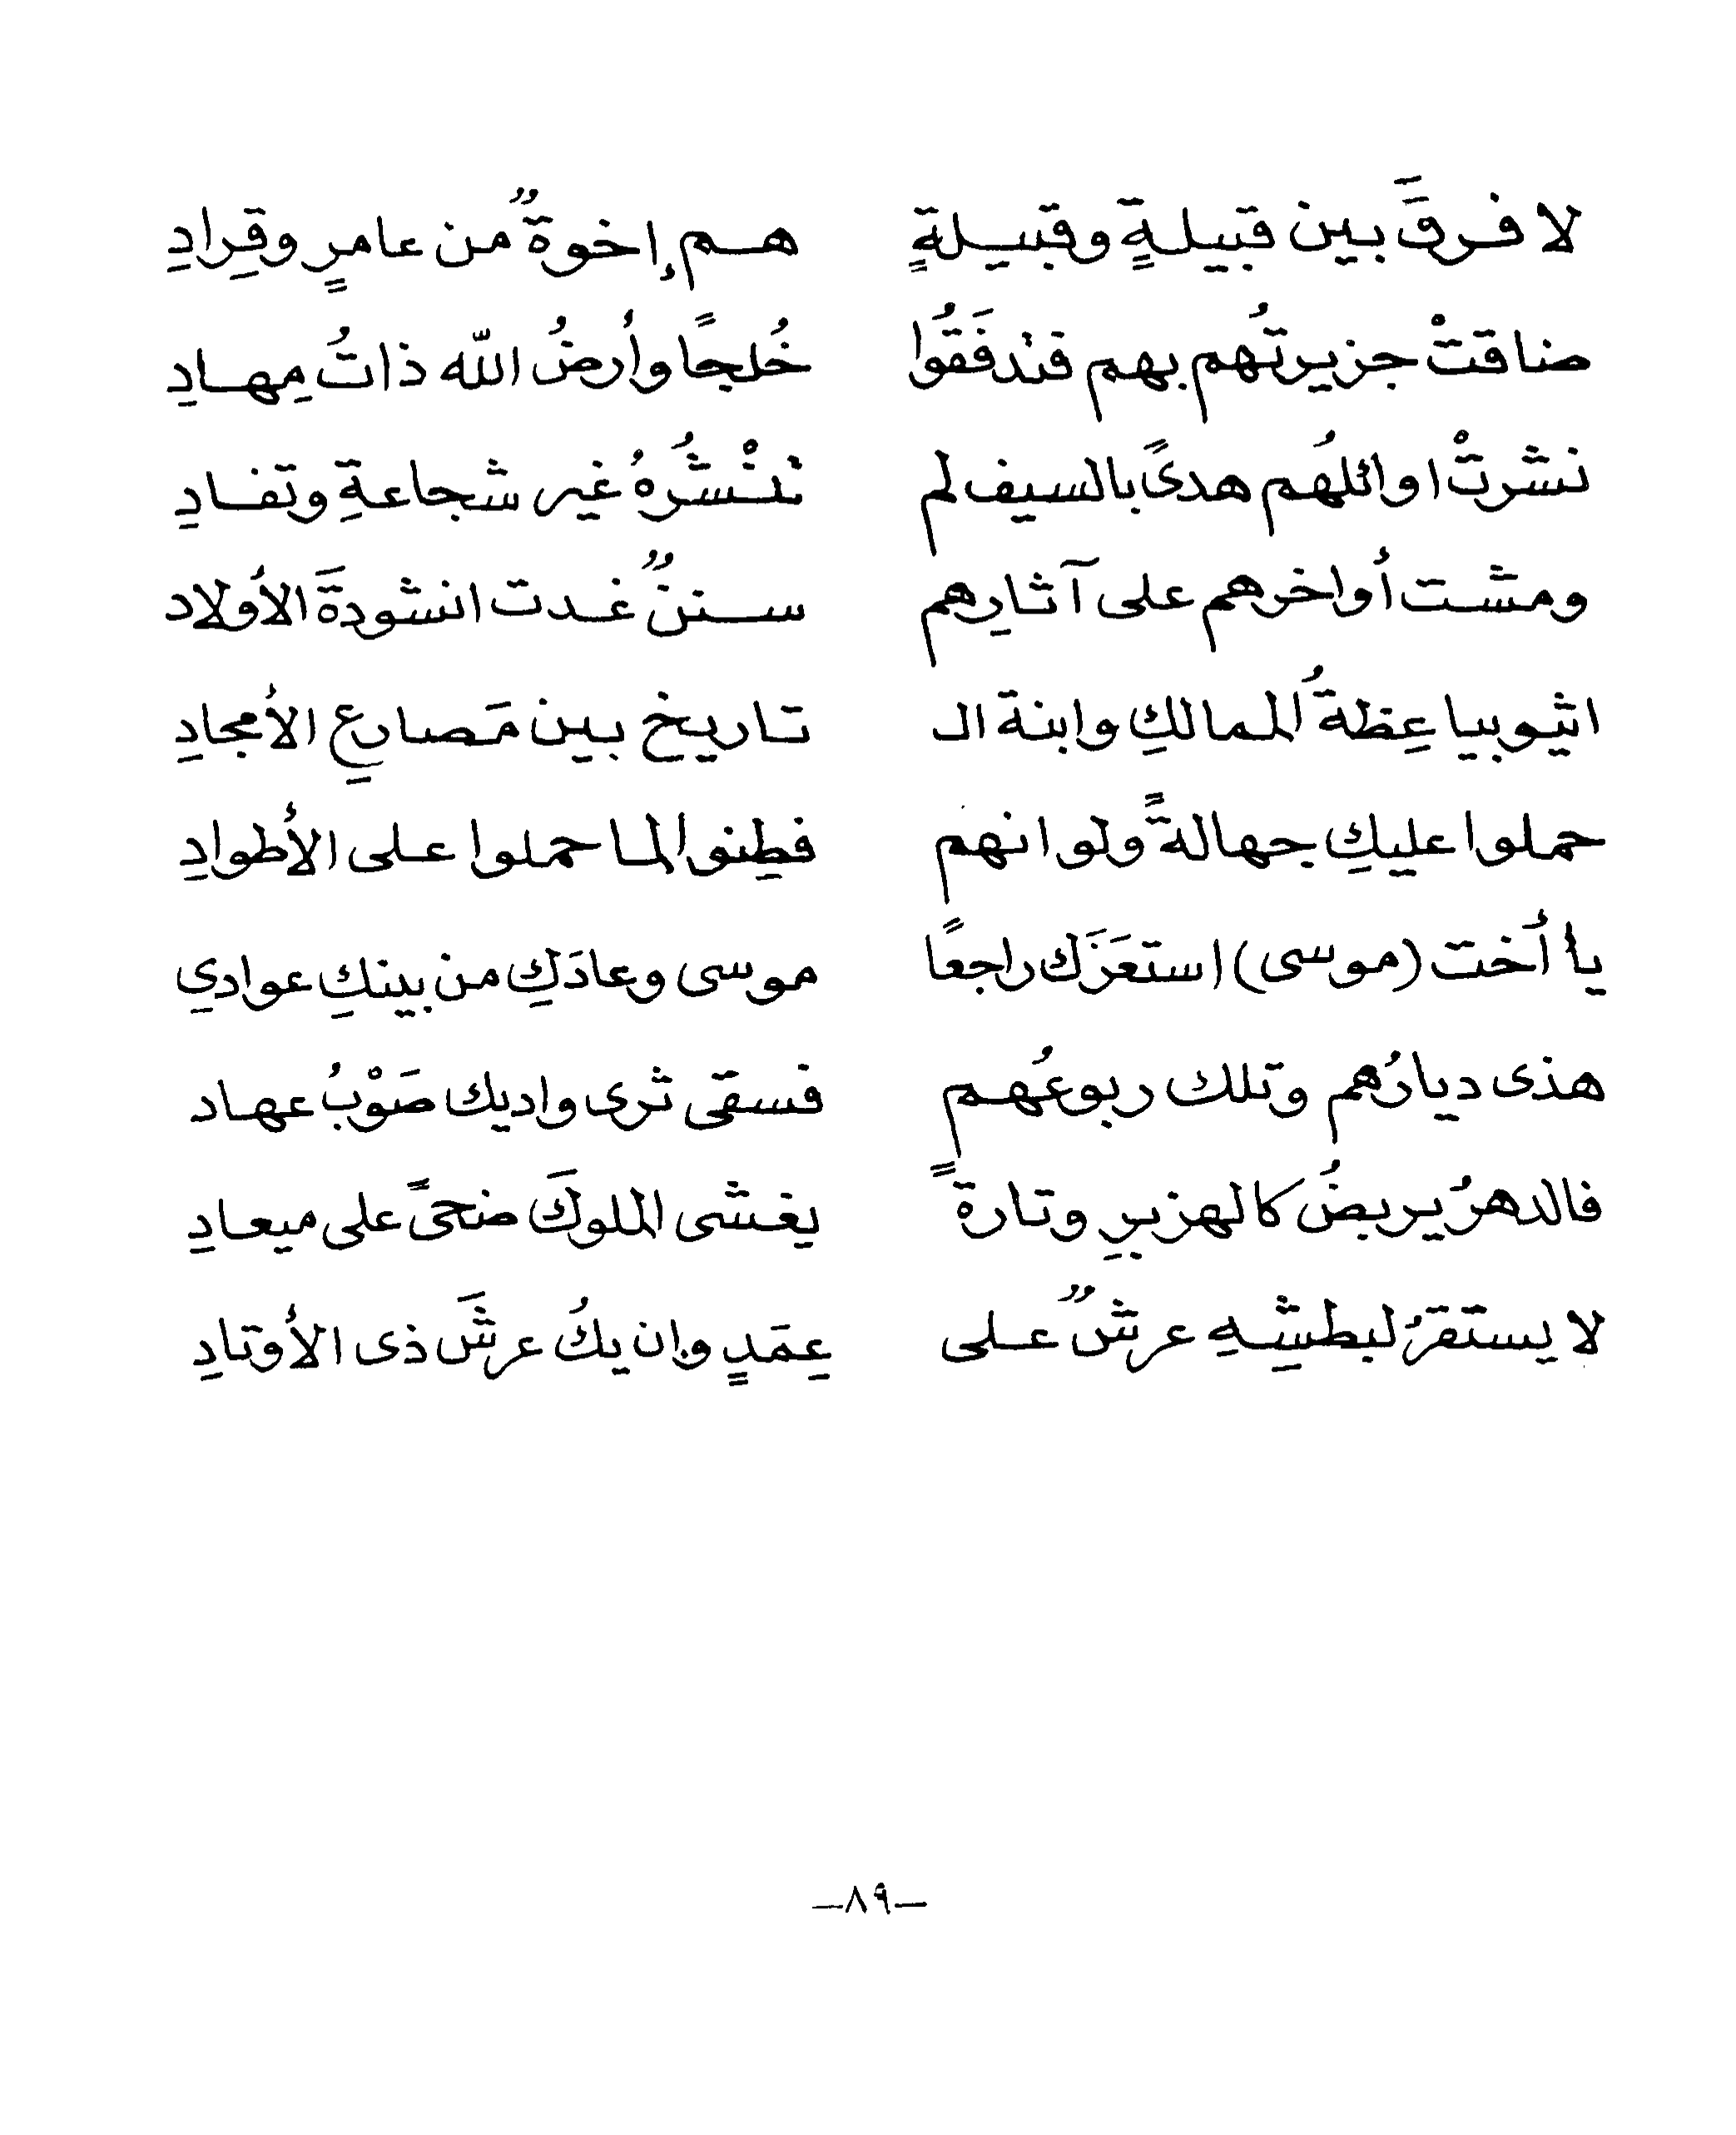 لا فرقَ بين قبيلةٍ وقبيلةٍ هم إخوةٌ من عامرٍ وقِرادِ
ضاقتْ جزيرتُهم بهم فتدفَقُوا خُلجًا وأرضُ الله ذاتُ مِهادِ
نشرتْ اوائلهُم هدىً بالسيف لم تنْشُرهُ غير شجاعةِ وتفادِ
ومشت أواخرهم على آثارِهم سننٌ غدت انشودةَ الأولاد
اثيوبيا عِظةُ الممالكِ وابنة الـ تاريخ بين مَصارعِ الأمجادِ
حملوا عليكِ جهالةً ولوانهم فطِنوا لما حملوا على الأطوادِ
يا أخت (موسى) استعَزَك راجعًا موسى وعادَكِ من بينكِ عوادي
هذى ديارُهم وتلك ربوعُهم فسقى ثرى واديك صَوْبُ عهاد
فالدهرُ يربضُ كالهزبرِ وتارةً يغشى الملوكَ ضحىً على ميعادِ
لا يستقرُ لبطشِهِ عرشٌ على عِمَدٍ وإن يكُ عرشَ ذى الأوتادِ
—٨٩—